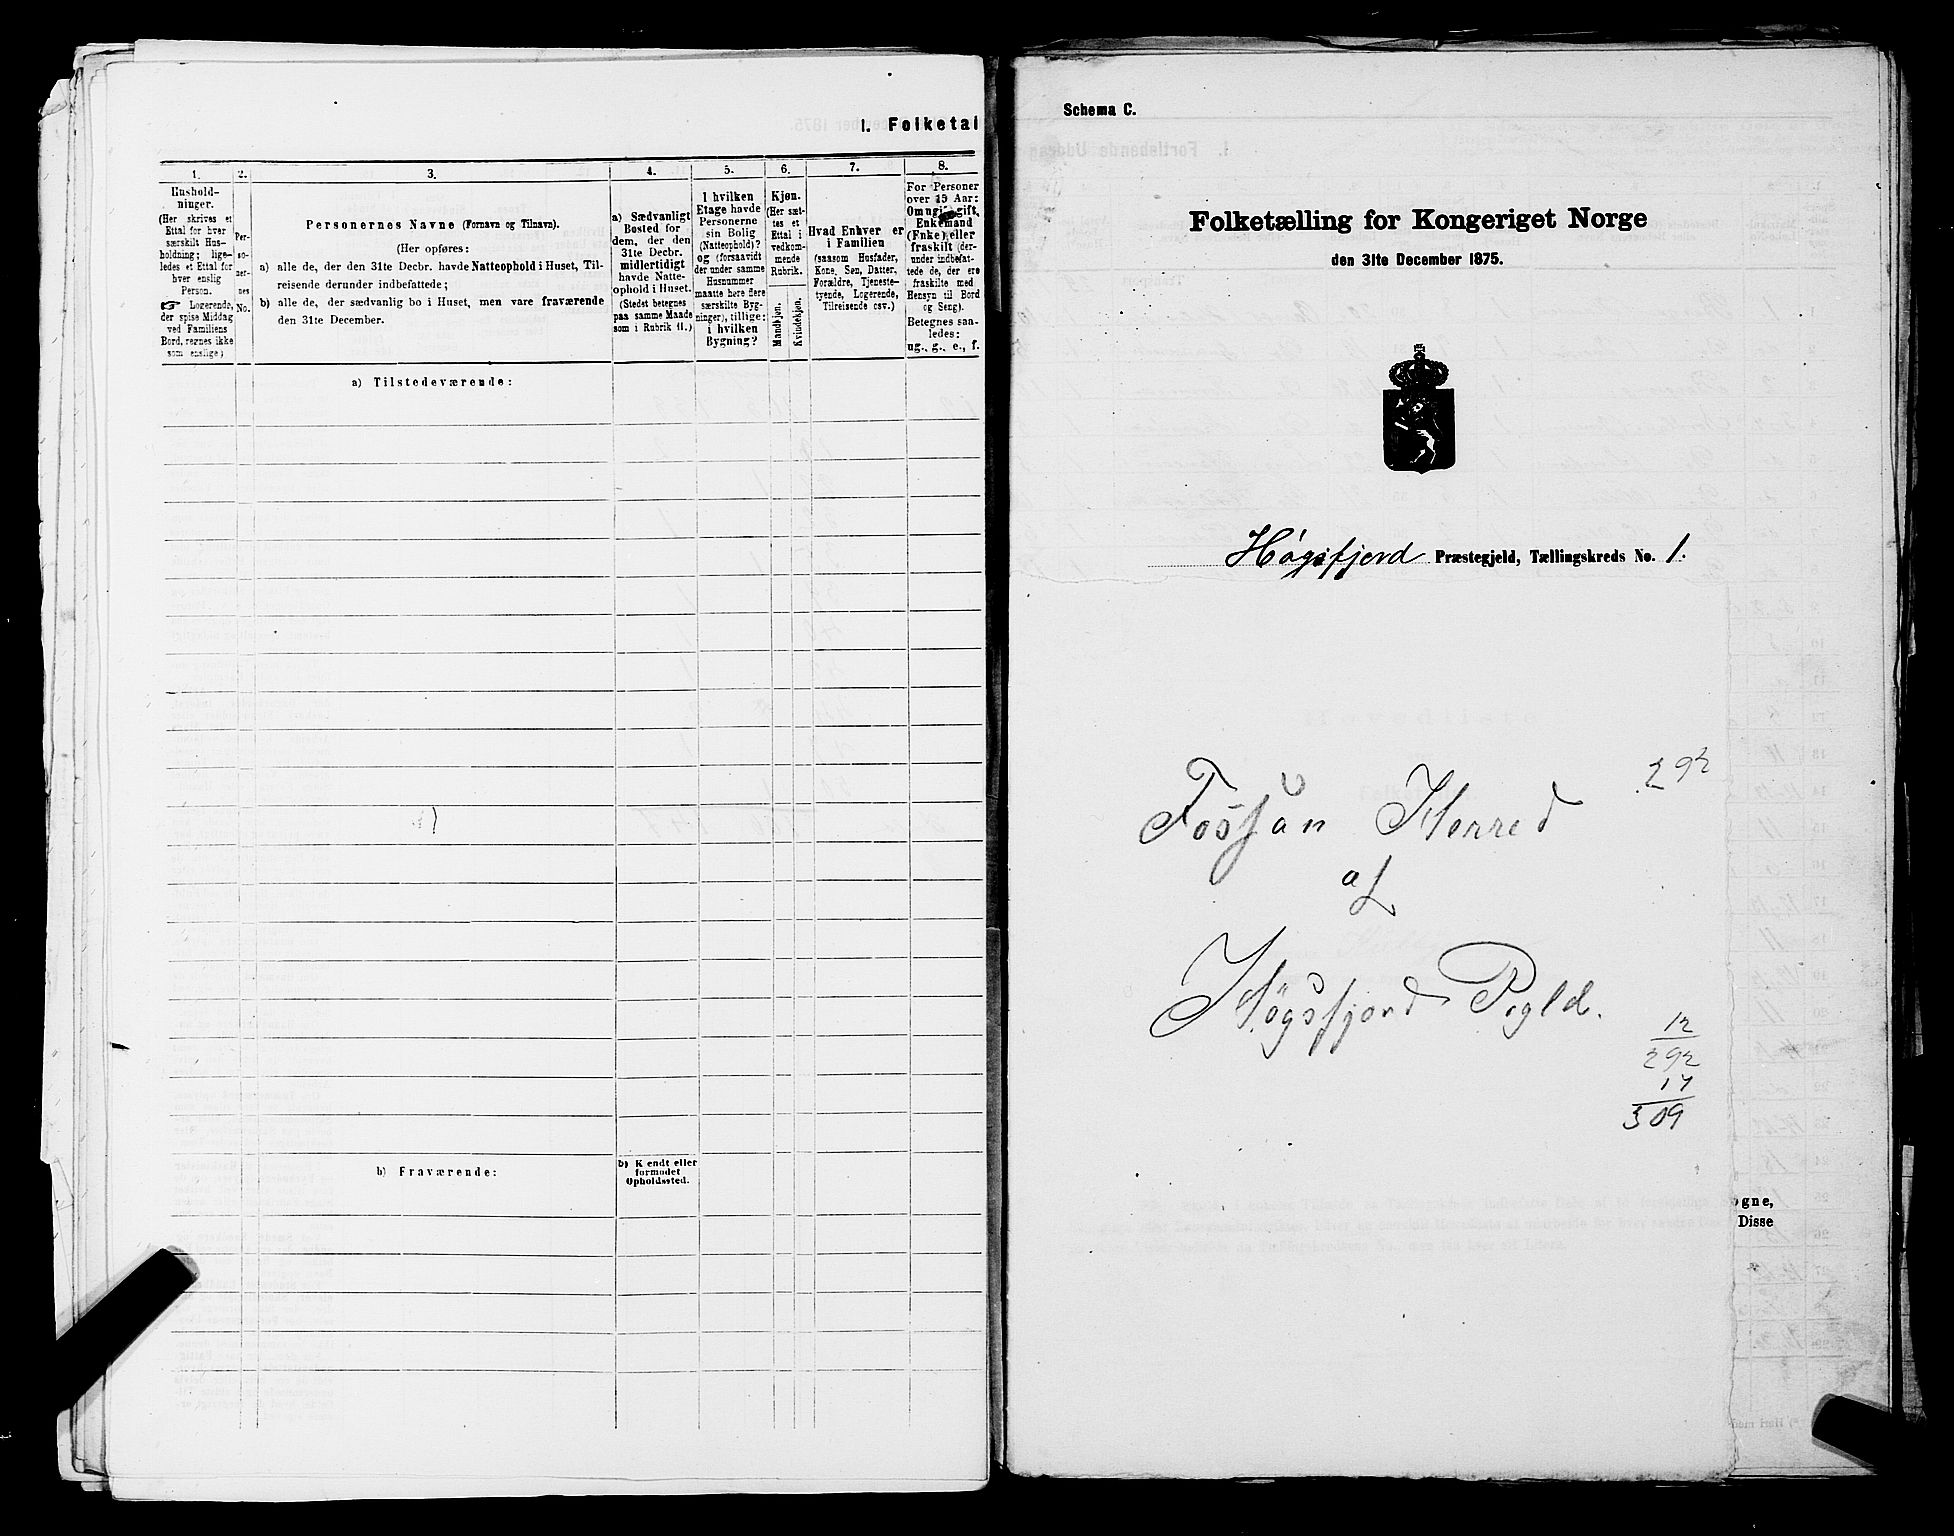 I. Folketal
1.
Hushold-
ninger.
(Her skrives et
Ettal for hver
særskilt Hus-
holdning; lige-
ledes et Ettal for
hver enslig
Person.
☞ Logerende,
der spise Middag
ved Familiens
Bord, regnes ikke
som enslige)
2.
Per-
so-
ner-
nes
No.
3.
Personernes Navne (Fornavn og Tilnavn).
(Her opføres:
a) alle de, der den 31te Decbr. havde Natteophold i Huset, Til-
reisende derunder indbefattede;
b) alle de, der sædvanlig bo i Huset, men vare fraværende
den 31te December.
4.
a) Sædvanligt
Bosted for
dem, der den
31te Decbr.
midlertidigt
havde Natte-
ophold i Huset.
(Stedst betegnes
paa samme Maade
som i Rubrik 11.)
5.
I hvilken
Etage havde
Personerne
sin Bolig
(Natteophold)?
og (forsaavidt
der under samme
Husnummer
maatte høre flere
særskilte Byg-
ninger), tillige:
i hvilken
Bygning?
6.
Kjøn.
(Her sæt-
tes et
Ettal i
vedkom-
mende
Rubrik.
Mandkjøn.
Kvindekjøn.
7.
Hvad Enhver er
i Familien
(saasom Husfader,
Kone, Søn, Datter,
Forældre, Tjeneste-
tyende, Logerende,
Tilreisende csv.)
8.
For Personer
over 15 Aar:
Om ugift, gift,
Enkemand
(Enke) eller
fraskilt (der-
under indbefat-
tede de, der ere
fraskilte med
Hensyn til Bord
og Seng).
Betegnes saa-
ledes:
ug., g., e., f.
a) Tilstedeværende:
b) Fraværende:
b) Kendt eller
formodet
Opholdssted.
Schema C.
Folketælling for Kongeriget Norge
den 31te December 1875.
Høgsfjord Præstegjeld, Tællingskreds No. 1.
292
Fossan Herred
af
Høgsfjord Pgld.
12
292
17
309
ogne,
Disse